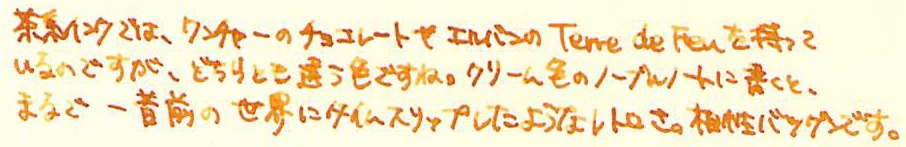 茶系インクでは、ワンチャーのチョコレートやエルバンの Terre de Feu を持って
いるのですが、どちらとも違う色ですね。クリーム色のノーブルノートに書くと、
まるで一昔前の世界にタイムスリップしたようなレトロさ。相性バツグンです。